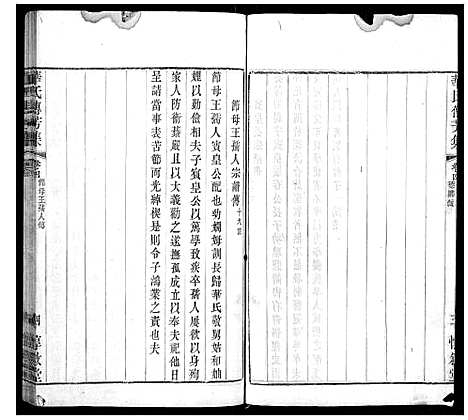 華氏傳芳集
卷四
節母王孺人宗譜傳 十九世
節母王孺人賓皇公配也幼嫻姆訓長歸華氏敬舅姑和妯
娌以勤儉相夫子賓皇公以篤學致疾卒孺人屢欲以身殉
家人防衛綦嚴且以大義勸之遂撫孤成立以奉夫祀他日
呈請當事表苦節而光綽楔是則令子鴻業之責也夫
華氏傳芳集
卷四
節母王孺人傳
四
惇敘堂